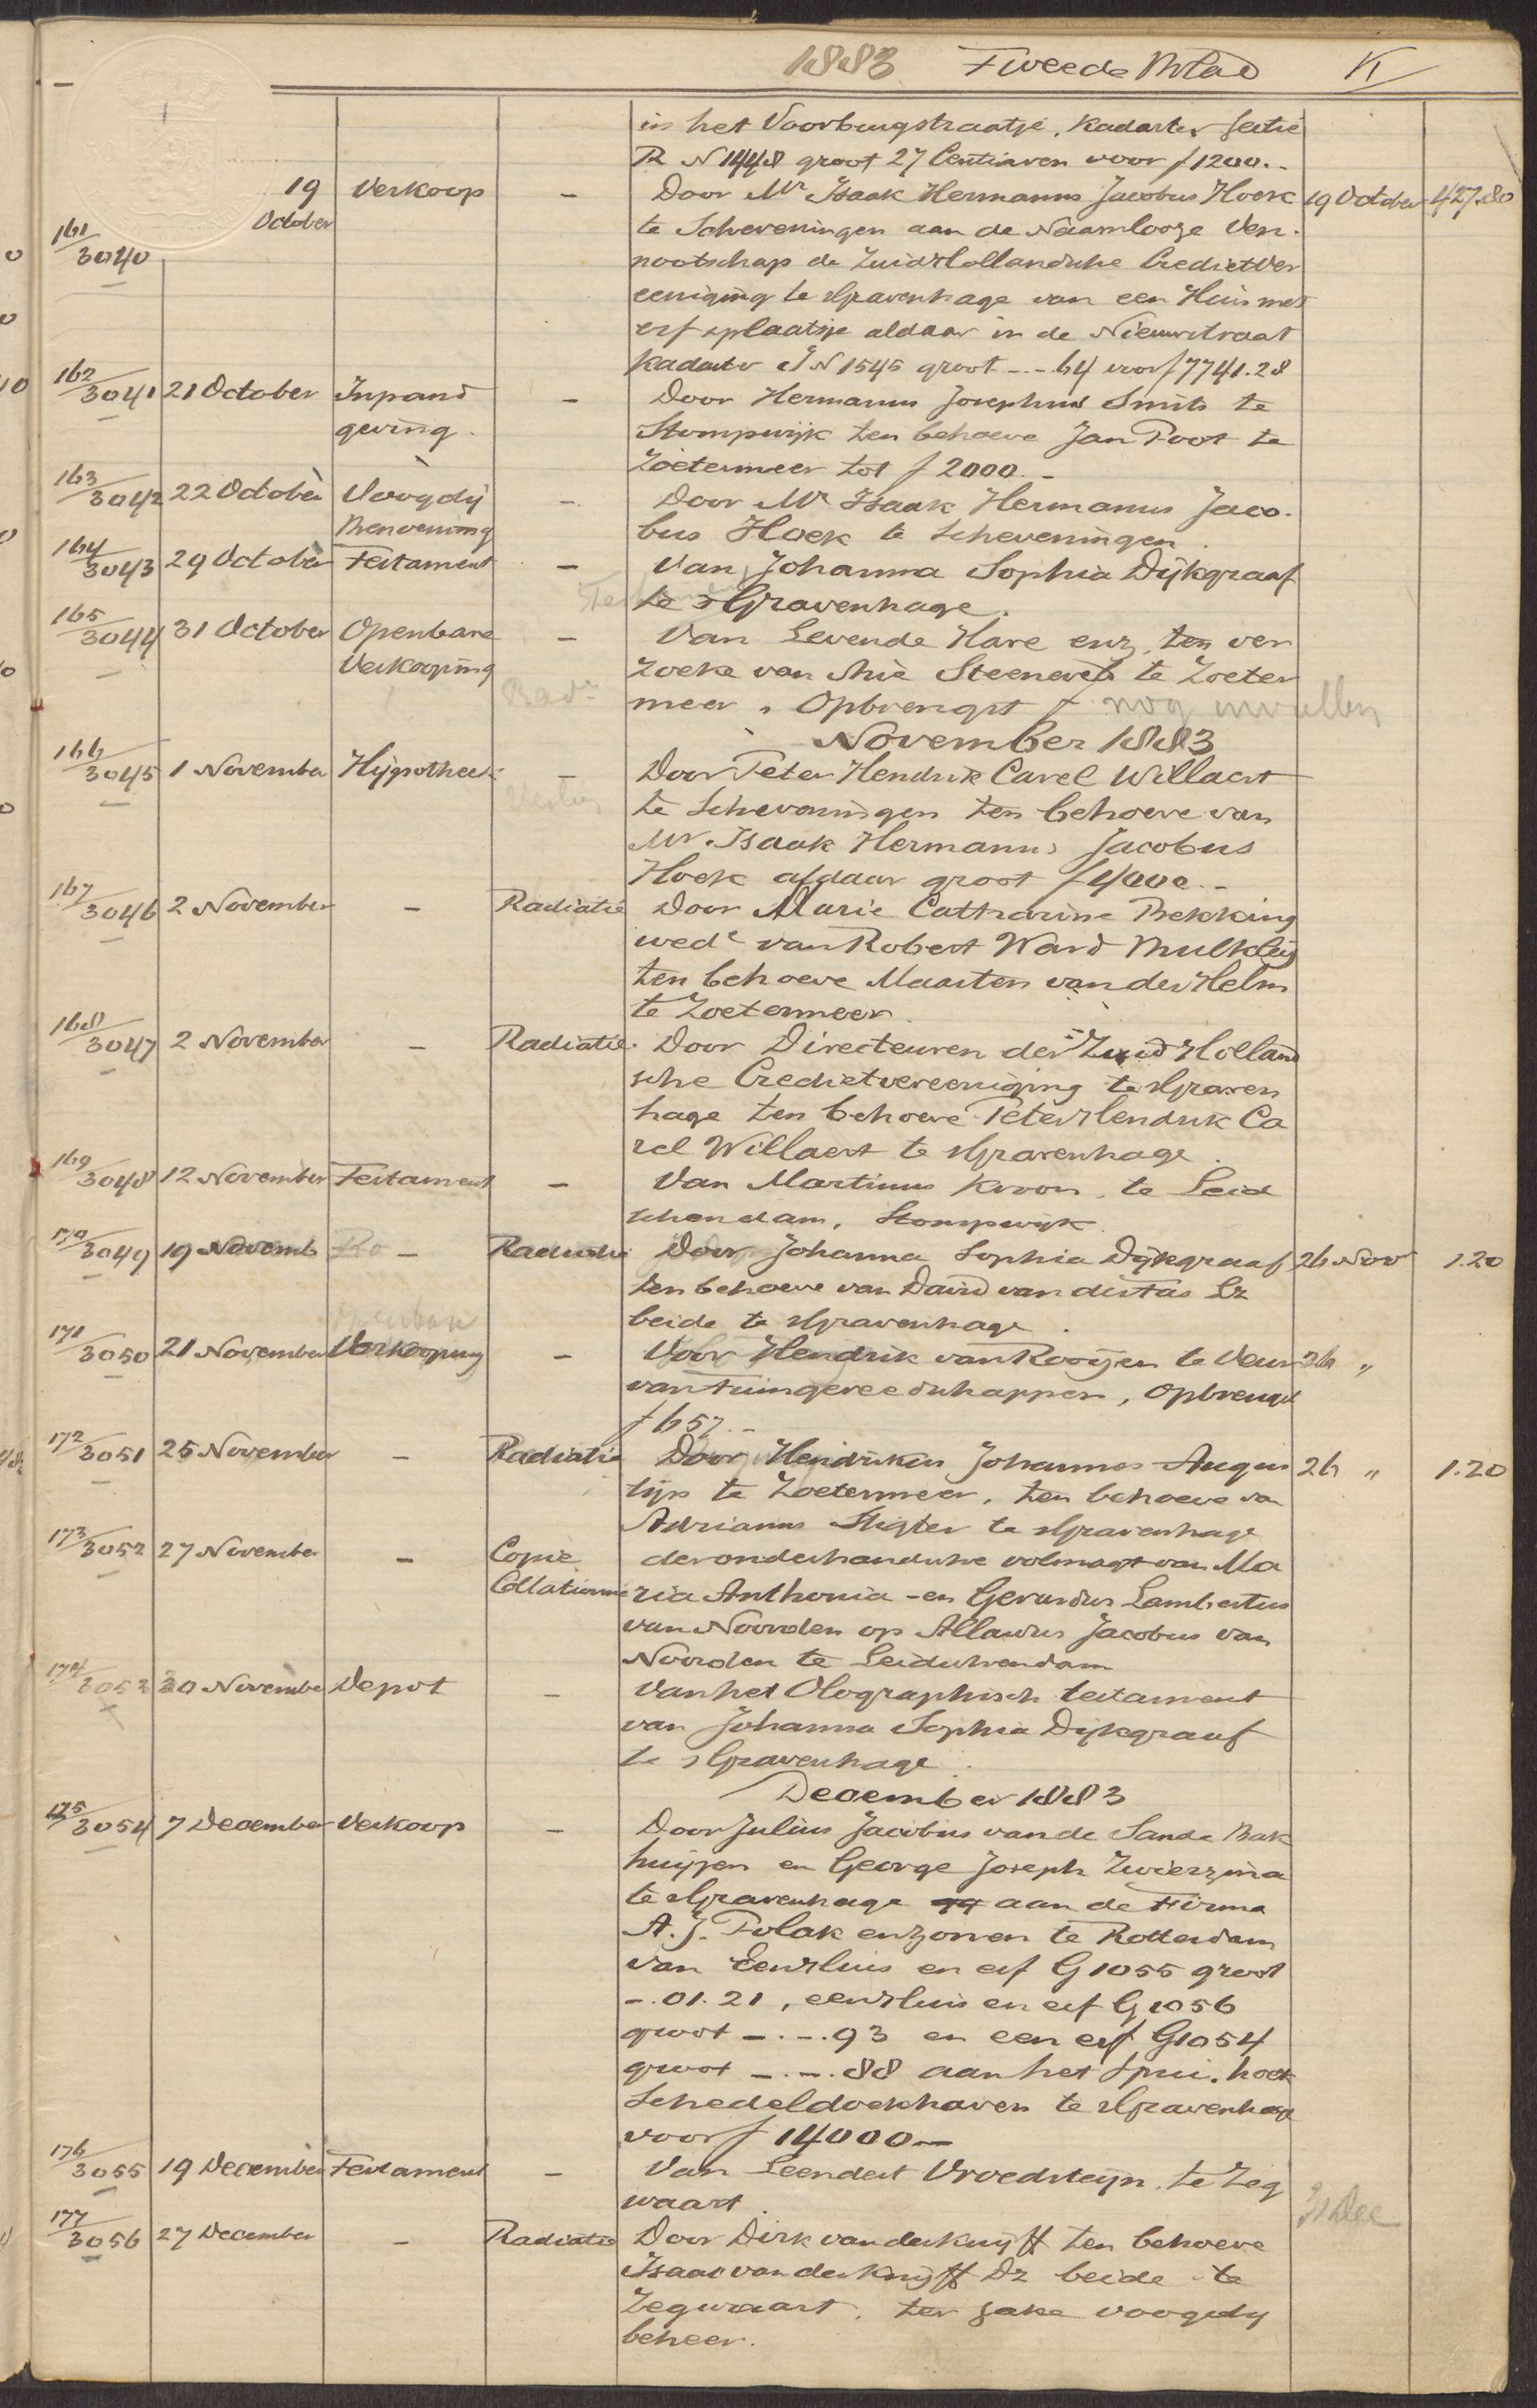 1883 Tweede Blad K
in het Voorburgstraatje, Kadaster sectie
R N 1448 groot 27 Centiaren voor f 1200.-
161/3040 19 October Verkoop - Door Mr Isaak Hermanus Jacobus Hoek 19 October 427.80
te Scheveningen aan de Naamlooze Ven-
nootschap de ZuidHollandsche Credietver
eeniging te sGravenhage van een Huis met
erf, plaatsje aldaar in de Nieuwstraat
Kadaster I N 1545 groot -.-64 voor f 7741.28
162/3041 21 October Inpand - Door Hermanus Josephus Smits te
geving. Stompwijk ten behoeve Jan Poot te
Zoetermeer tot f 2000.-
163/3042 22 October Voogdij - Door Mr Isaak Hermanus Jaco-
Benoeming bus Hoek te Scheveningen.
164/3043 29 October Testament - Van Johanna Sophia Dijkgraaf
te sGravenhage.
165/3044 31 October Openbare - Van Levende Have enz. ten ver
Verkooping zoeke van Arie te Zoeter
meer, Opbrengst f nog invullen
November 1883
166/3045 1 November Hypotheek - Door Peter Hendrik Carel Willaert
te Scheveningen ten behoeve van
Mr. Isaak Hermanus Jacobus
Hoek aldaar groot f 4000.-
167/3046 2 November - Radiatie Door Marie Catharine Bekking
wede van Robert Ward
ten behoeve Maarten van der Helm
te Zoetermeer.
168/3047 2 November - Radiatie. Door Directeuren der Zuid Holland
sche Credietvereeniging te sGraven
hage ten behoeve Peter Hendrik Ca
rel Willaert te sGravenhage.
169/3048 12 November Testament - Van Martinus Kroon, te Leid
schendam, Stompwijk.
170/3049 19 Novemb - Radiatie Door Johanna Sophia Dijkgraaf 26 Nov 1.20
ten behoeve van David van
beide te sGravenhage.
171/3050 21 November Openbare Verkooping - Voor Hendrik van Rooijen te Veur 26 "
van tuingereedschappen, Opbrengst
f 657.-
172/3051 25 November - Radiatie Door Hendrikus Johannes Augus 26 " 1.20
tijn te Zoetermeer, ten behoeve van
Adrianus Stigter te sGravenhage
173/3052 27 November - Copie der onderhandsche volmagt van Ma
Collationne ria Anthonia en Gerardus Lambertus
van Noorden op Allardus Jacobus van
Noorden te Leidschendam
174/3053 30 November Depot - van het Olographisch testament
van Johanna Sophia Dijkgraaf
te sGravenhage.
December 1883
175/3054 7 December Verkoop - Door Julius Jacobus van de Sande Bak
huijzen en George Joseph Zwierzina
te sGravenhage qq aan de Firma
A. J. Polak en zonen te Rotterdam
van Een Huis en erf G 1055 groot
-.01.21, een Huis en erf G 1056
groot -.-.93 en een erf G 1054
groot -.-.88 aan het Spui, hoek
Schedeldoekhaven te sGravenhage
voor f 14000.-
176/3055 19 December Testament - Van Leendert Vroedsteijn te Zeg
waart.
177/3056 27 December - Radiatie Door Dirk van der Knijff ten behoeve 31 Dec
Isaac van der Knijff Dz beide te
Zegwaart, ter zake voogdij
beheer.